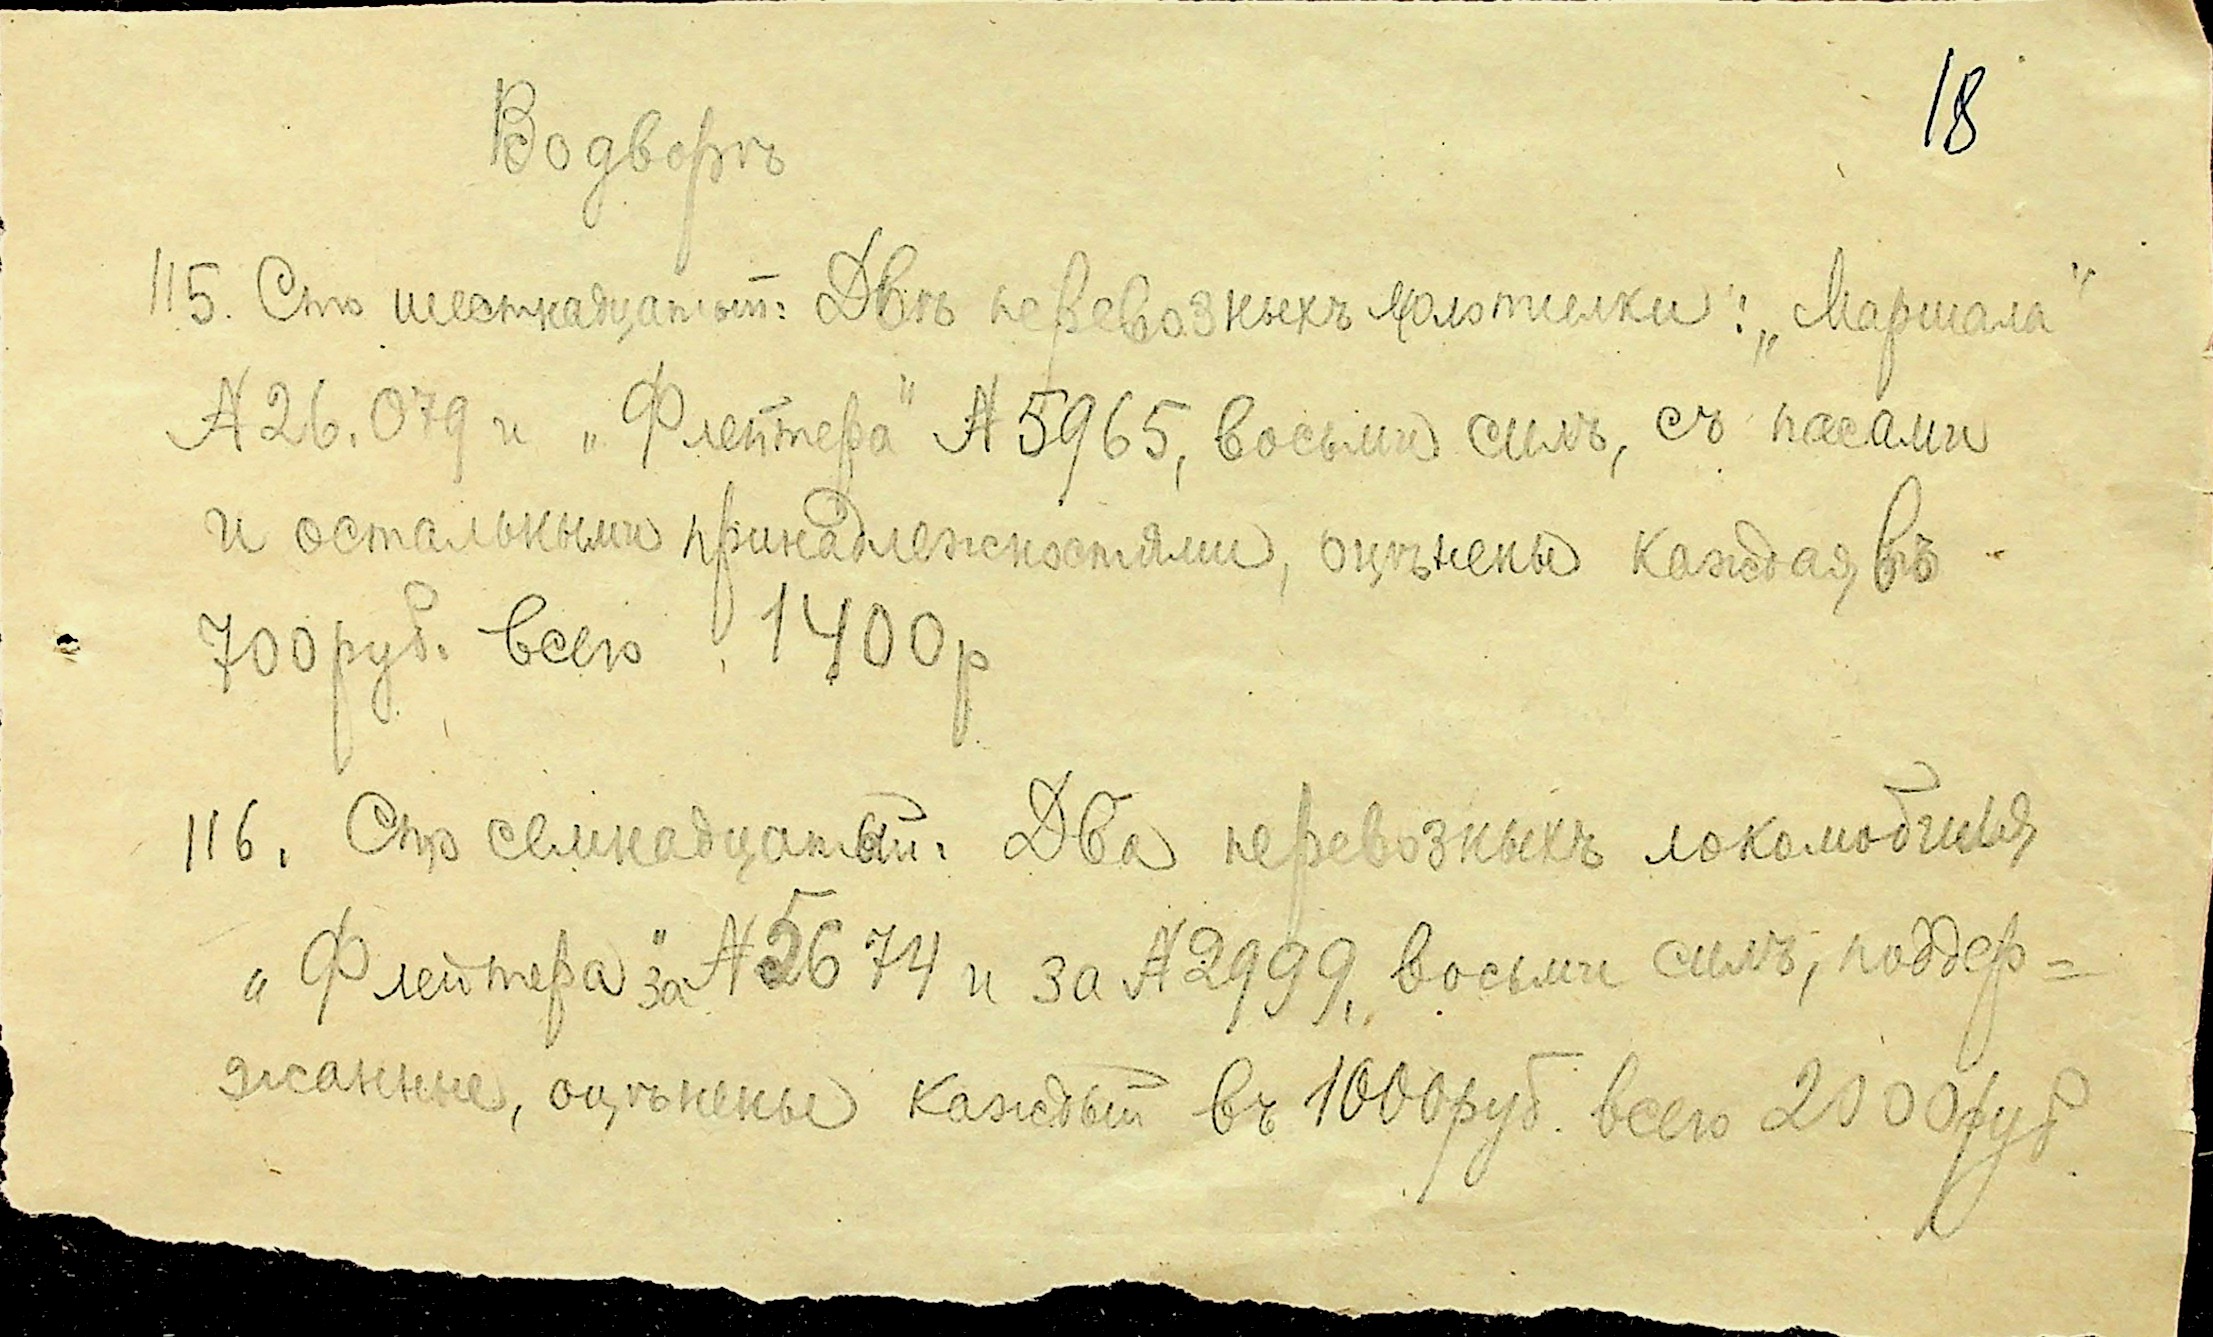 18
Во дворѣ
115. Сто шестнадцатый: Двѣ перевозныхъ молотилки: „Маршала"
№ 26.079 и „Флейтера" № 5965, восьми силъ, съ пасами
и остальными принадлежностями, оцѣнены каждая въ
700 руб. всего 1400 р
116. Сто семнадцатый. Два перевозныхъ локомобиля
„Флейтера" за № 5674 и за № 2999, восьми силъ, поддер=
жанные, оцѣнены каждый въ 1000 руб. всего 2000 руб